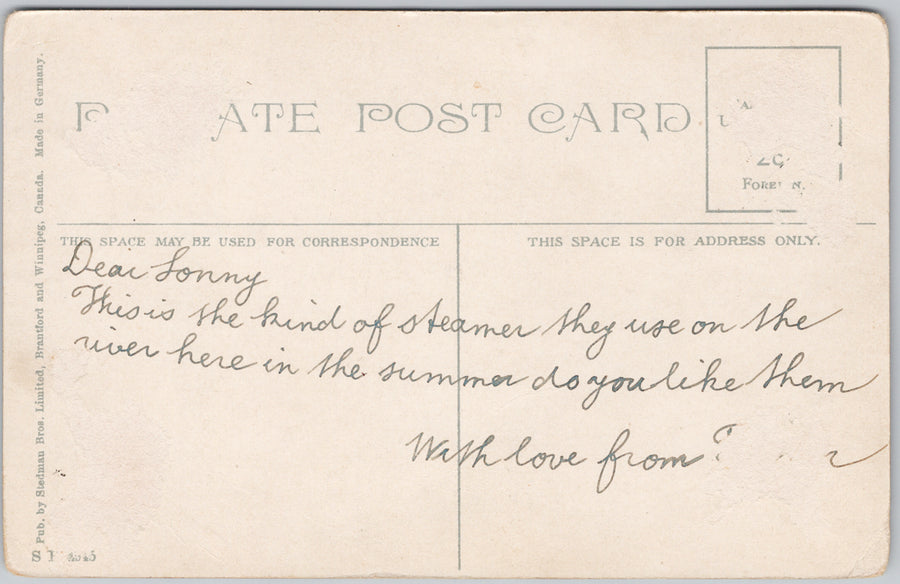 ATE POST CARD
THIS SPACE MAY BE USED FOR CORRESPONDENCE
THIS SPACE IS FOR ADDRESS ONLY.
Dear Sonny
This is the kind of steamer they use on the
river here in the summer do you like them
With love from
Pub. by Stedman Bros. Limited, Brantford and Winnipeg, Canada. Made in Germany.